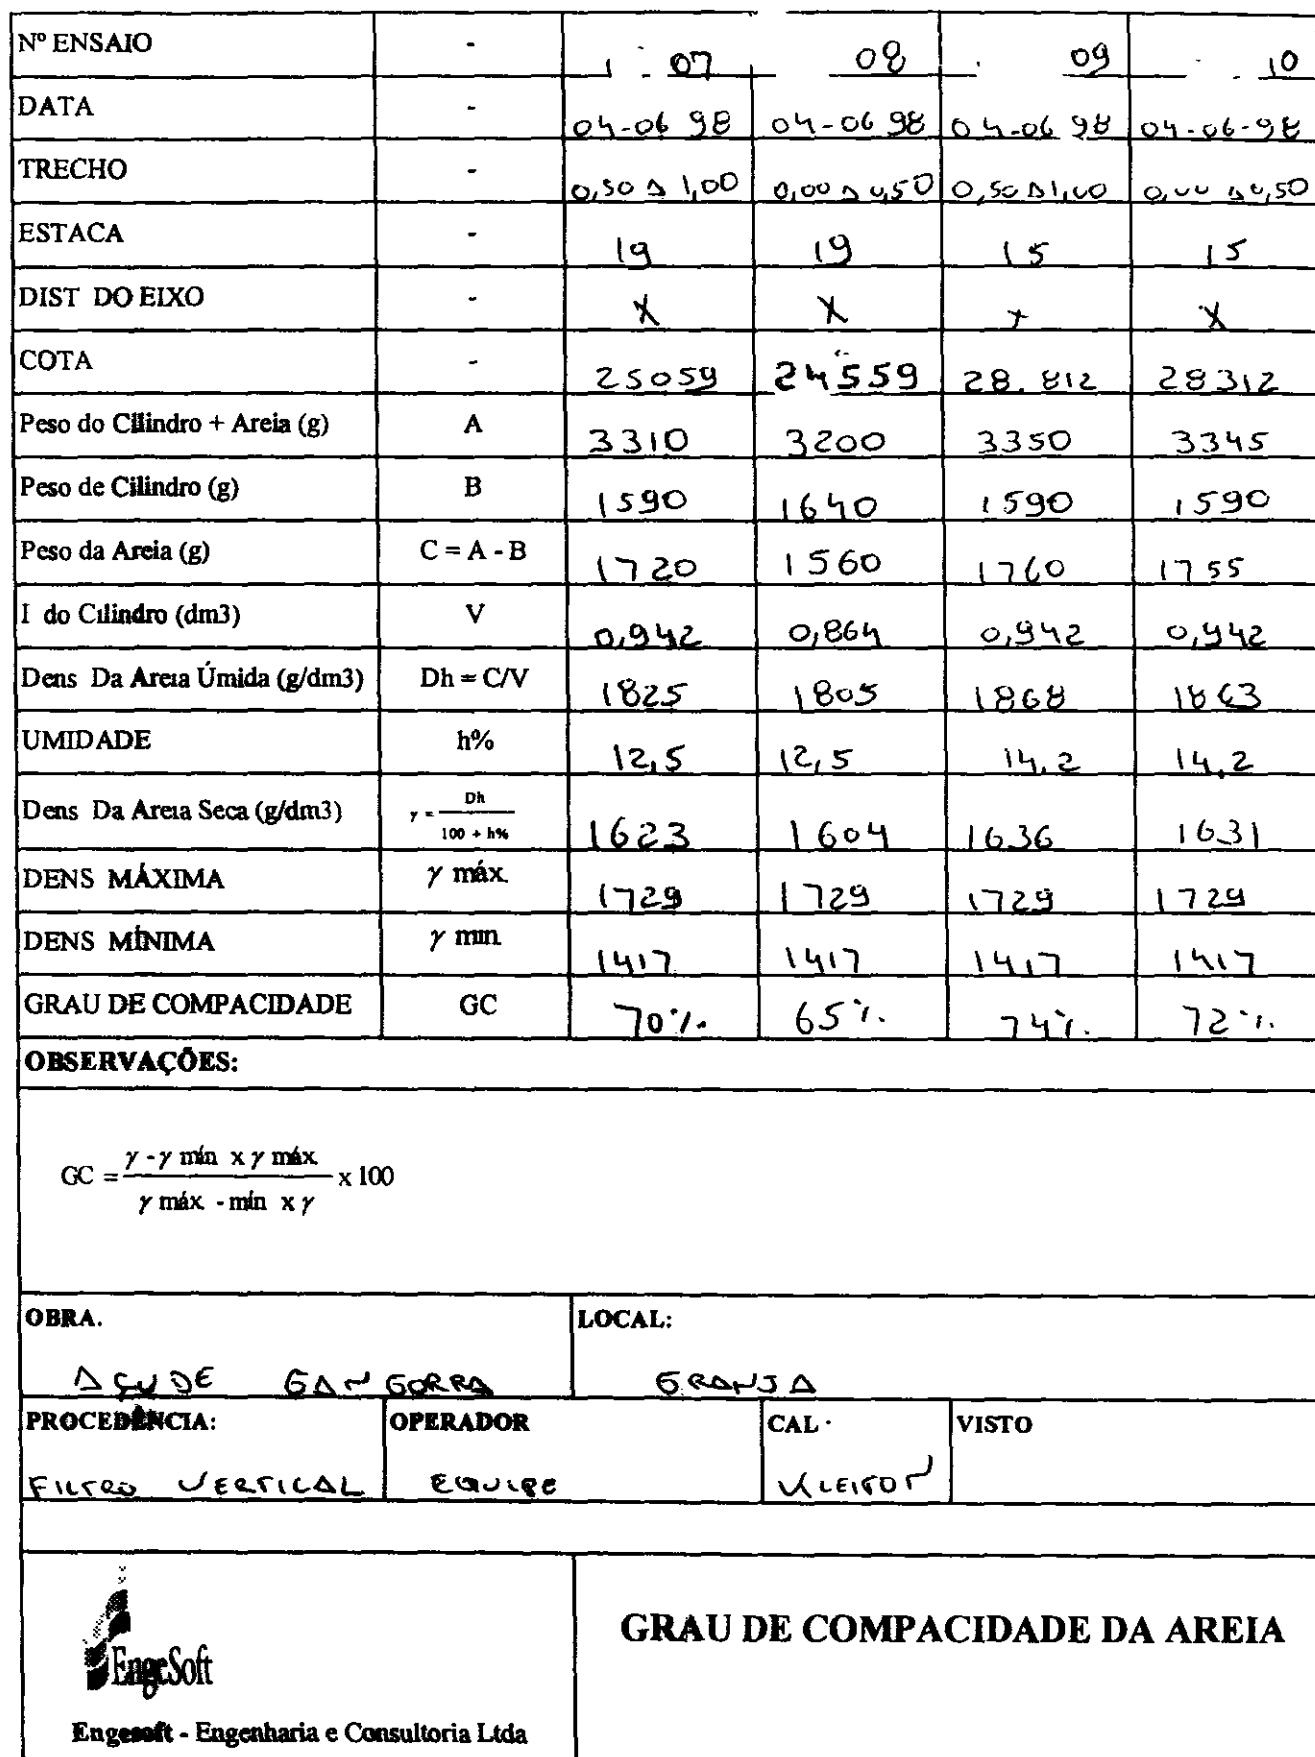 Nº ENSAIO - 07 08 09 10
DATA - 04-06 98 04-06 98 04-06 98 04-06-98
TRECHO - 0,50 A 1,00 0,00 A 0,50 0,50 A 1,00 0,00 A 0,50
ESTACA - 19 19 15 15
DIST DO EIXO - X X X X
COTA - 25059 24559 28.812 28312
Peso do Cilindro + Areia (g) A 3310 3200 3350 3345
Peso de Cilindro (g) B 1590 1640 1590 1590
Peso da Areia (g) C = A - B 1720 1560 1760 1755
I do Cilindro (dm3) V 0,942 0,864 0,942 0,942
Dens Da Areia Úmida (g/dm3) Dh = C/V 1825 1805 1868 1863
UMIDADE h% 12,5 12,5 14,2 14,2
Dens Da Areia Seca (g/dm3) γ = Dh / 100 + h% 1623 1604 1636 1631
DENS MÁXIMA γ máx. 1729 1729 1729 1729
DENS MÍNIMA γ min 1417 1417 1417 1417
GRAU DE COMPACIDADE GC 70% 65% 74% 72%
OBSERVAÇÕES:
GC = γ - γ mín x γ máx. / γ máx. - mín x γ x 100
OBRA. LOCAL:
AÇUDE GANGORRA GRANJA
PROCEDÊNCIA: OPERADOR CAL. VISTO
FILTRO VERTICAL EQUIPE KLEITON
EngeSoft
GRAU DE COMPACIDADE DA AREIA
Engesoft - Engenharia e Consultoria Ltda